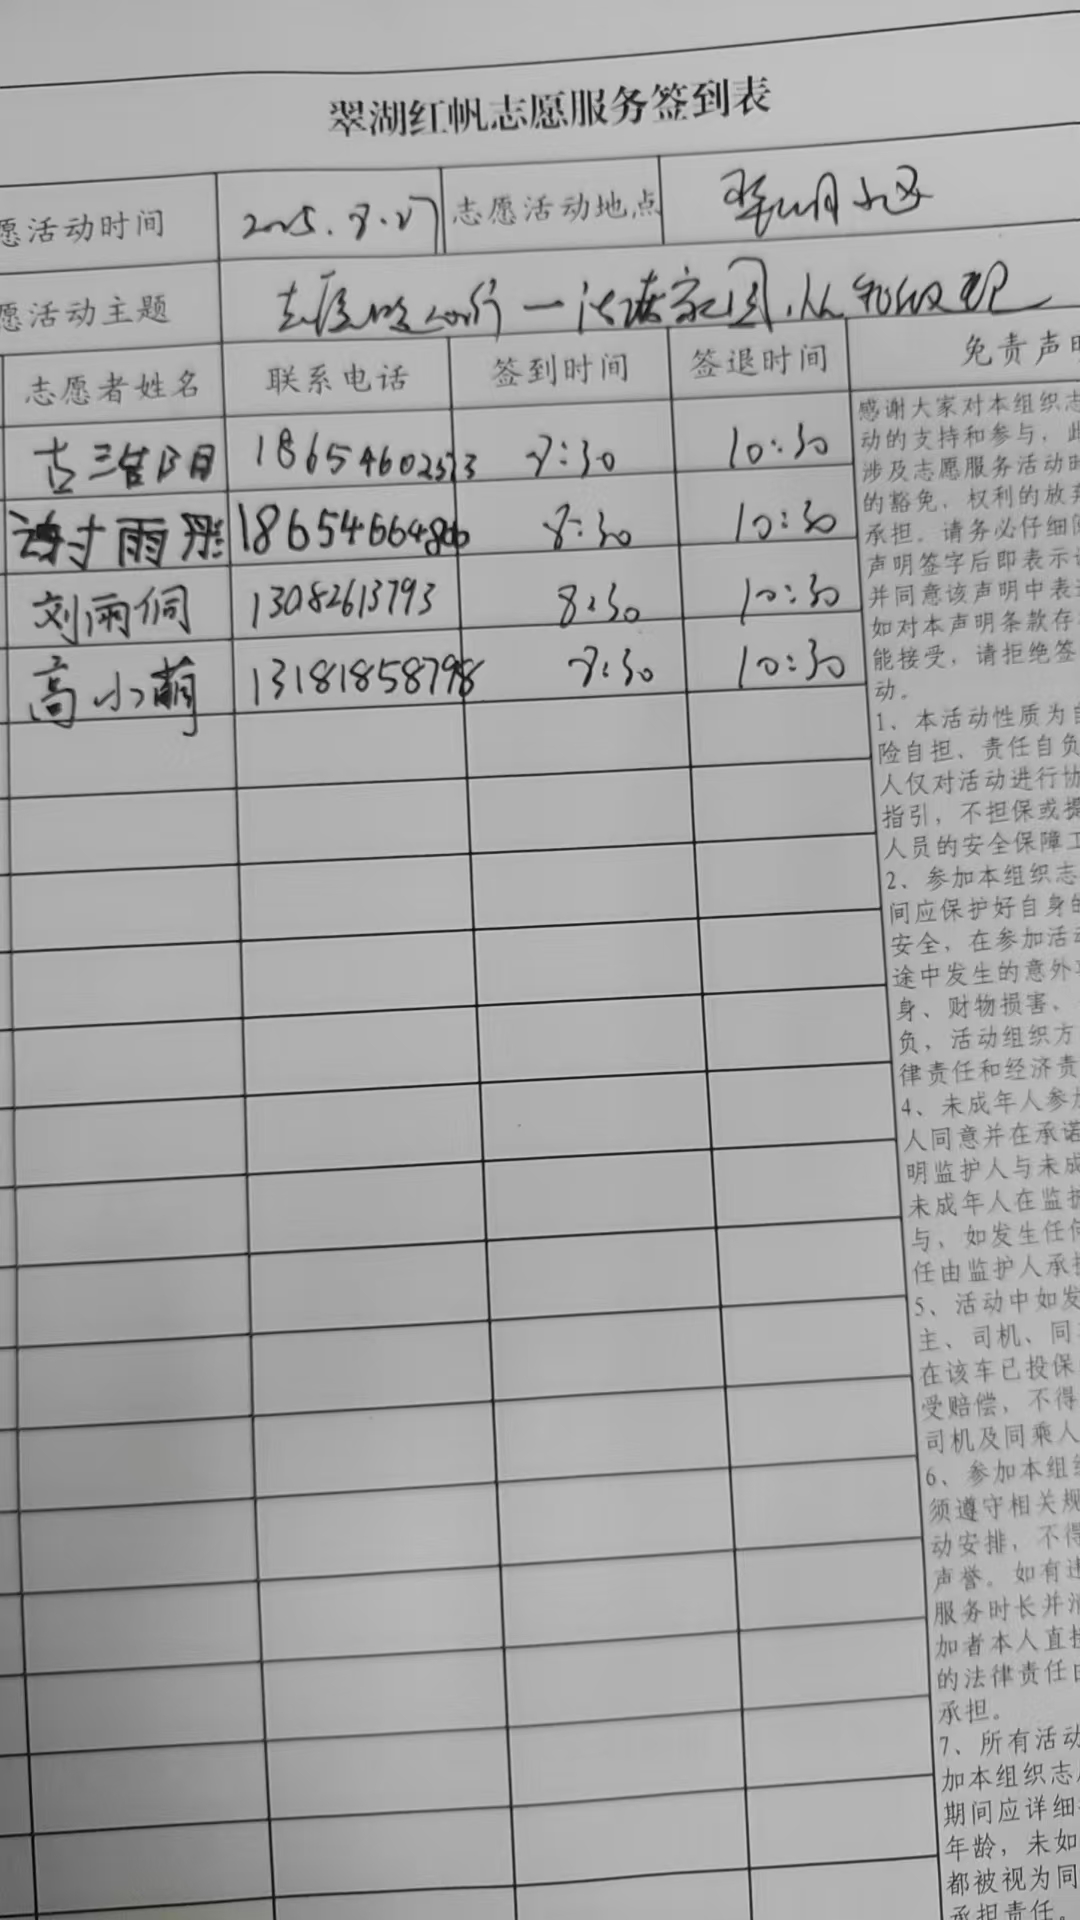 翠湖红帆志愿服务签到表
愿活动时间 2025.8.27 志愿活动地点
愿活动主题
志愿者姓名 联系电话 签到时间 签退时间 免责声明
8:30 10:30
谢雨彤 8:30 10:30
刘雨侗 13082613793 8:30 10:30
高小萌 13181858798 8:30 10:30
感谢大家对本组织志
动的支持和参与，此
涉及志愿服务活动时
的豁免、权利的放弃
承担。请务必仔细阅
声明签字后即表示
并同意该声明中表
如对本声明条款存
能接受，请拒绝签
动。
1、本活动性质为自
险自担、责任自负
人仅对活动进行协
指引，不担保或提
人员的安全保障工
2、参加本组织志
间应保护好自身的
安全，在参加活动
途中发生的意外
身、财物损害、
负，活动组织方
律责任和经济责
4、未成年人参加
人同意并在承诺
明监护人与未成
未成年人在监护
与，如发生任何
任由监护人承担
5、活动中如发
主、司机、同
在该车已投保
受赔偿，不得
司机及同乘人
6、参加本组织
须遵守相关规
动安排，不得
声誉。如有违
服务时长并消
加者本人直接
的法律责任由
承担。
7、所有活动
加本组织志愿
期间应详细
年龄，未如
都被视为同
承担责任。